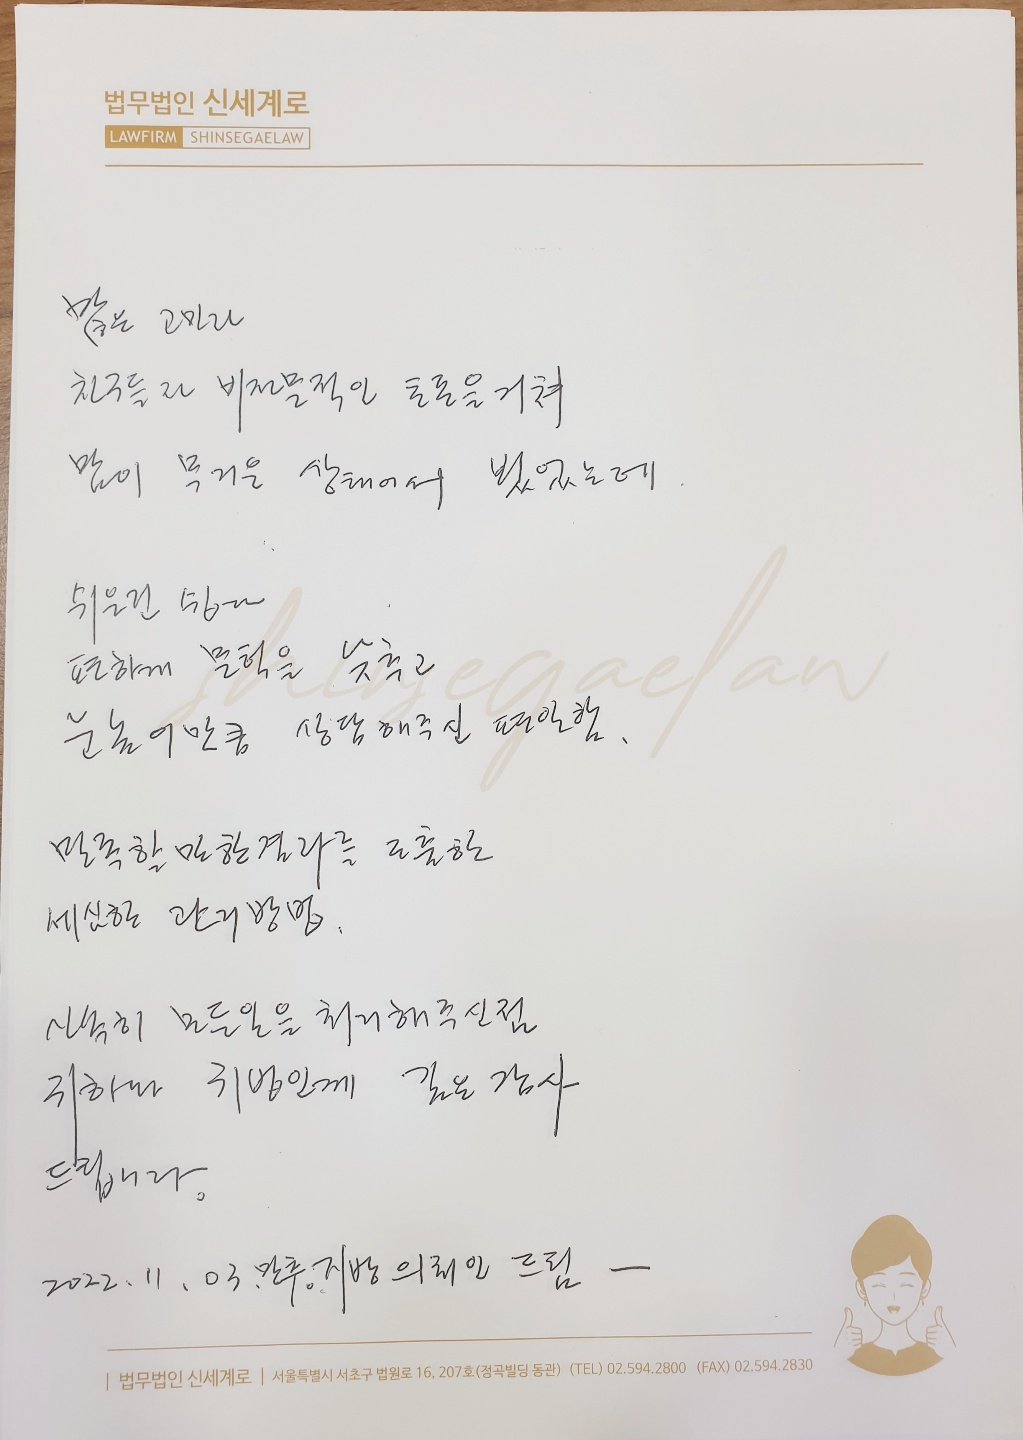 법무법인 신세계로
LAWFIRM SHINSEGAELAW
많은 고민과
친구들과 비전문적인 토론을 거쳐
맘이 무거운 상태에서 뵀었는데.
shinsegaelaw
쉬운건 쉽고
편하게 문턱을 낮추고
눈높이만큼 상담해주신 편안함.
만족할만한 결과를 도출한
세심한 관리방법.
신속히 모든일을 처리해주신점
귀하와 귀법인께 깊은 감사
드립니다.
2022.11.03 지방 의뢰인 드림 —
법무법인 신세계로 | 서울특별시 서초구 법원로 16, 207호(정곡빌딩 동관) (TEL) 02.594.2800 (FAX) 02.594.2830